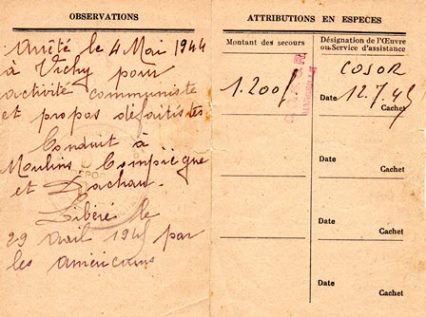 OBSERVATIONS
Arrêté le 4 Mai 1944
à Vichy pour
activité communiste
et propos défaitistes
Conduit à
Moulins, Compiègne
et Dachau.
Libéré le
29 avril 1945 par
les américains
ATTRIBUTIONS EN ESPECES
Montant des secours
Désignation de l'Œuvre
ou Service d'assistance
1.200f
COSOR
Date 12.7.45
Cachet
Date
Cachet
Date
Cachet
Date
Cachet
Date
Cachet